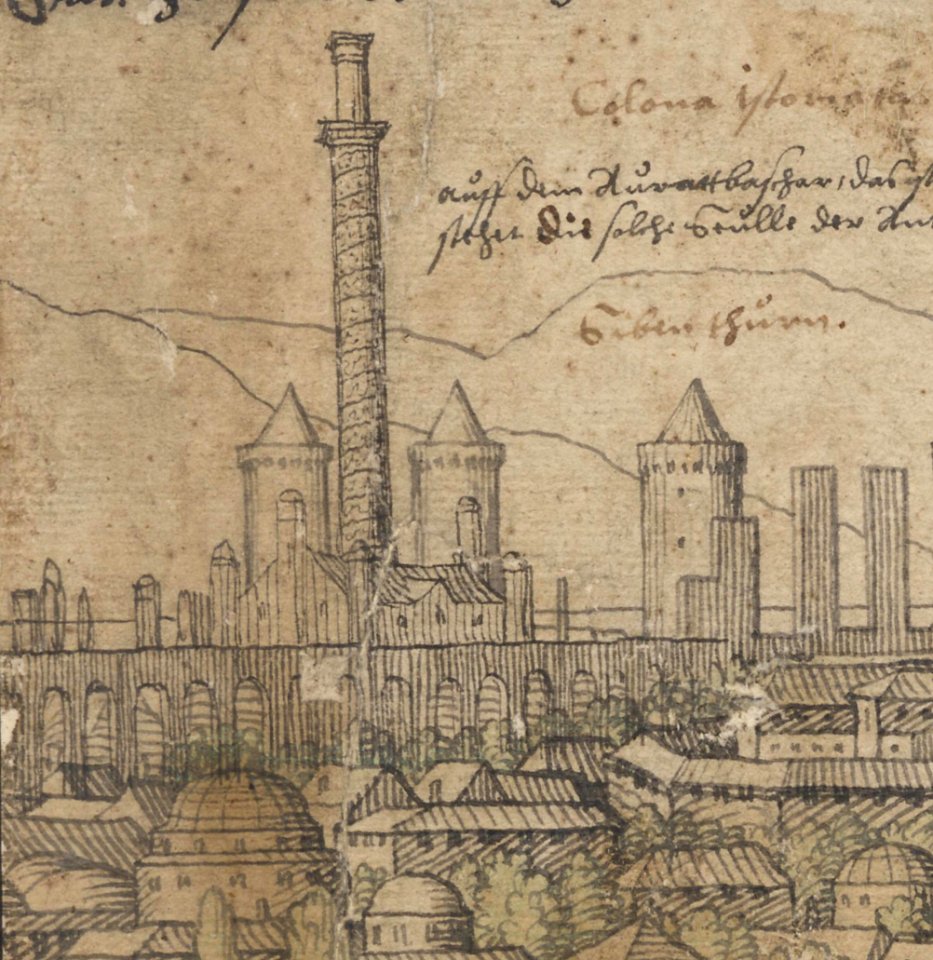 Colona istoria
auff dem Aurattbaschar, das ist
stehet die solche Seulle der Ant
Siben thurn.